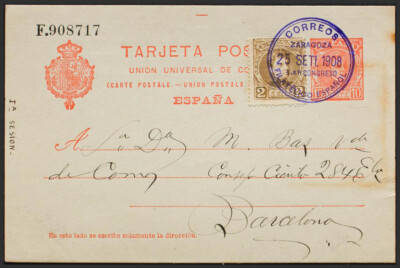 F.908717
TARJETA POS
UNION UNIVERSAL DE CO
(CARTE POSTALE.—UNION POSTALE
ESPAÑA
CORREOS
ZARAGOZA
25 SET. 1908
ESPAÑOL
2
2
10
Iª SESION.
A Sra. Dª M. Bas Vda
de Comas Consejo Ciento 284
Barcelona
En este lado se escribe solamente la dirección.